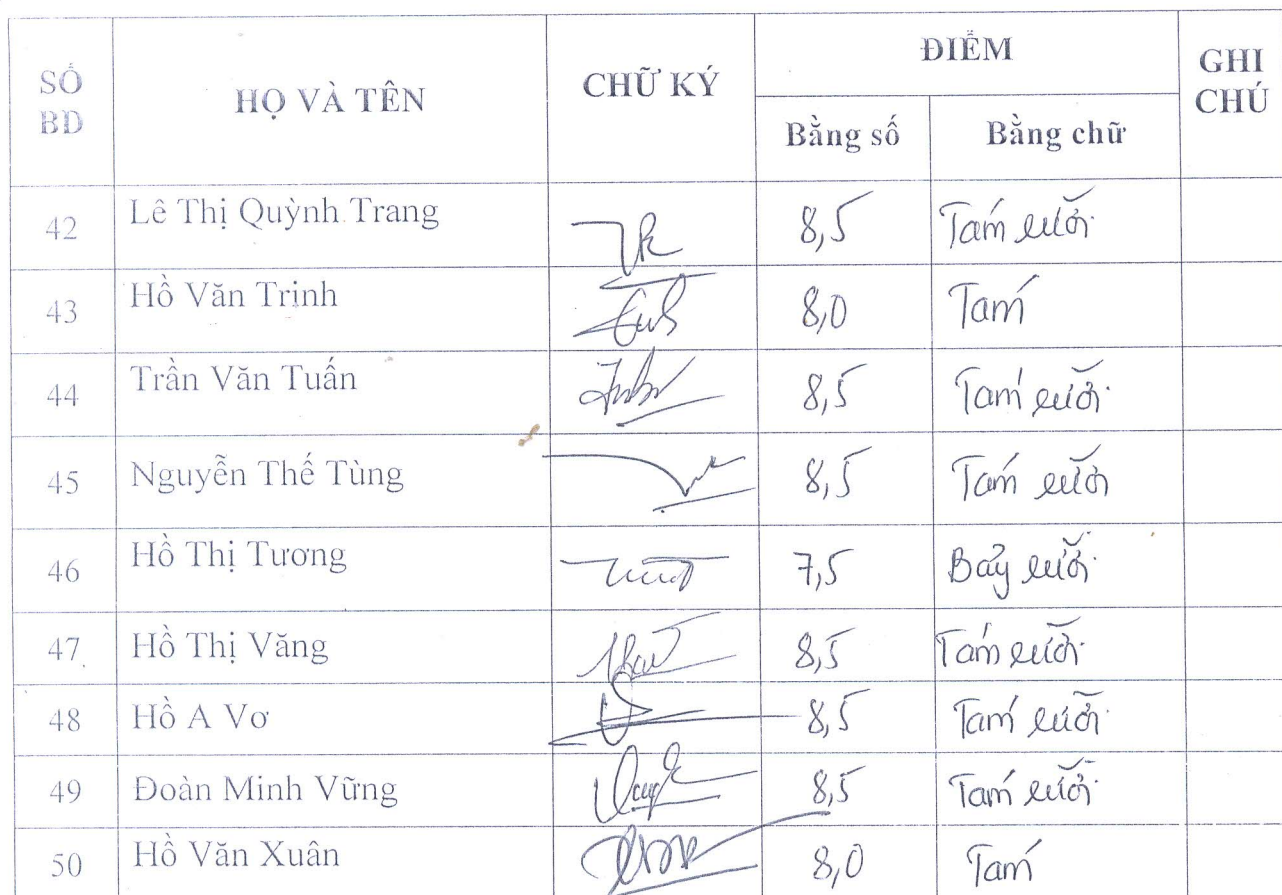 SỐ BD HỌ VÀ TÊN CHỮ KÝ ĐIỂM GHI CHÚ
Bằng số Bằng chữ
42 Lê Thị Quỳnh Trang 8,5 Tám rưỡi
43 Hồ Văn Trinh 8,0 Tám
44 Trần Văn Tuấn 8,5 Tám rưỡi
45 Nguyễn Thế Tùng 8,5 Tám rưỡi
46 Hồ Thị Tương 7,5 Bảy rưỡi
47 Hồ Thị Văng 8,5 Tám rưỡi
48 Hồ A Vơ 8,5 Tám rưỡi
49 Đoàn Minh Vững 8,5 Tám rưỡi
50 Hồ Văn Xuân 8,0 Tám